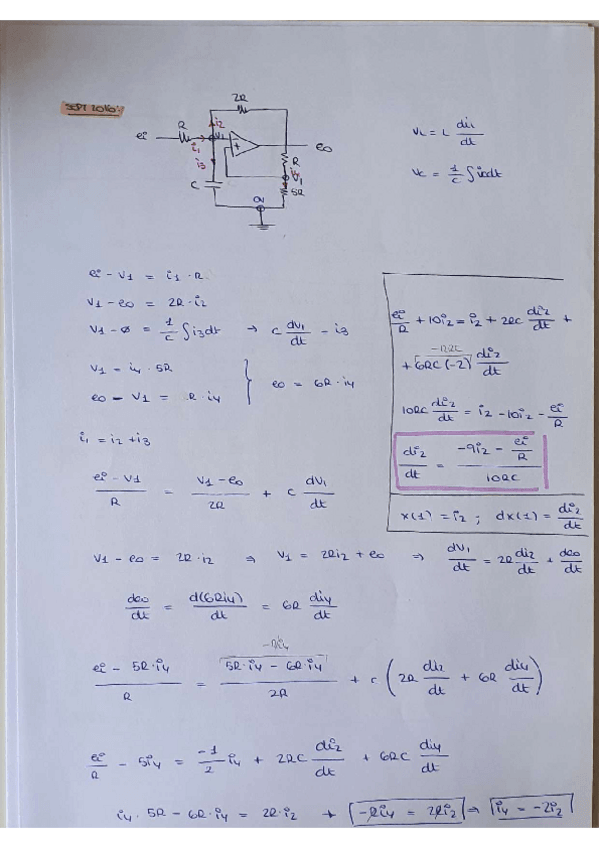 SEPT 2010:
2R
ei
R
i1
i2
V1
+
eo
R
i4
V1
5R
i3
C
0V
VL = L di1/dt
Vc = 1/C ∫ icdt
ei - V1 = i1 · R
V1 - eo = 2R · i2
V1 - ø = 1/C ∫ i3dt → C dV1/dt - i3
V1 = i4 · 5R
eo - V1 = R · i4
} eo = 6R · i4
i1 = i2 + i3
(ei - V1)/R = (V1 - eo)/2R + C dV1/dt
V1 - eo = 2R · i2 ⇒ V1 = 2Ri2 + eo ⇒ dV1/dt = 2R di2/dt + deo/dt
deo/dt = d(6Ri4)/dt = 6R di4/dt
-Ri4
(ei - 5R·i4)/R = (5R·i4 - 6R·i4)/2R + C (2R di2/dt + 6R di4/dt)
ei/R - 5i4 = -1/2 i4 + 2RC di2/dt + 6RC di4/dt
i4 · 5R - 6R · i4 = 2R · i2 → -Ri4 = 2Ri2 ⇒ i4 = -2i2
ei/R + 10i2 = i2 + 2RC di2/dt +
-12RC
+ 6RC (-2) di2/dt
10RC di2/dt = i2 - 10i2 - ei/R
di2/dt = (-9i2 - ei/R)/10RC
x(1) = i2 ; dx(1) = di2/dt